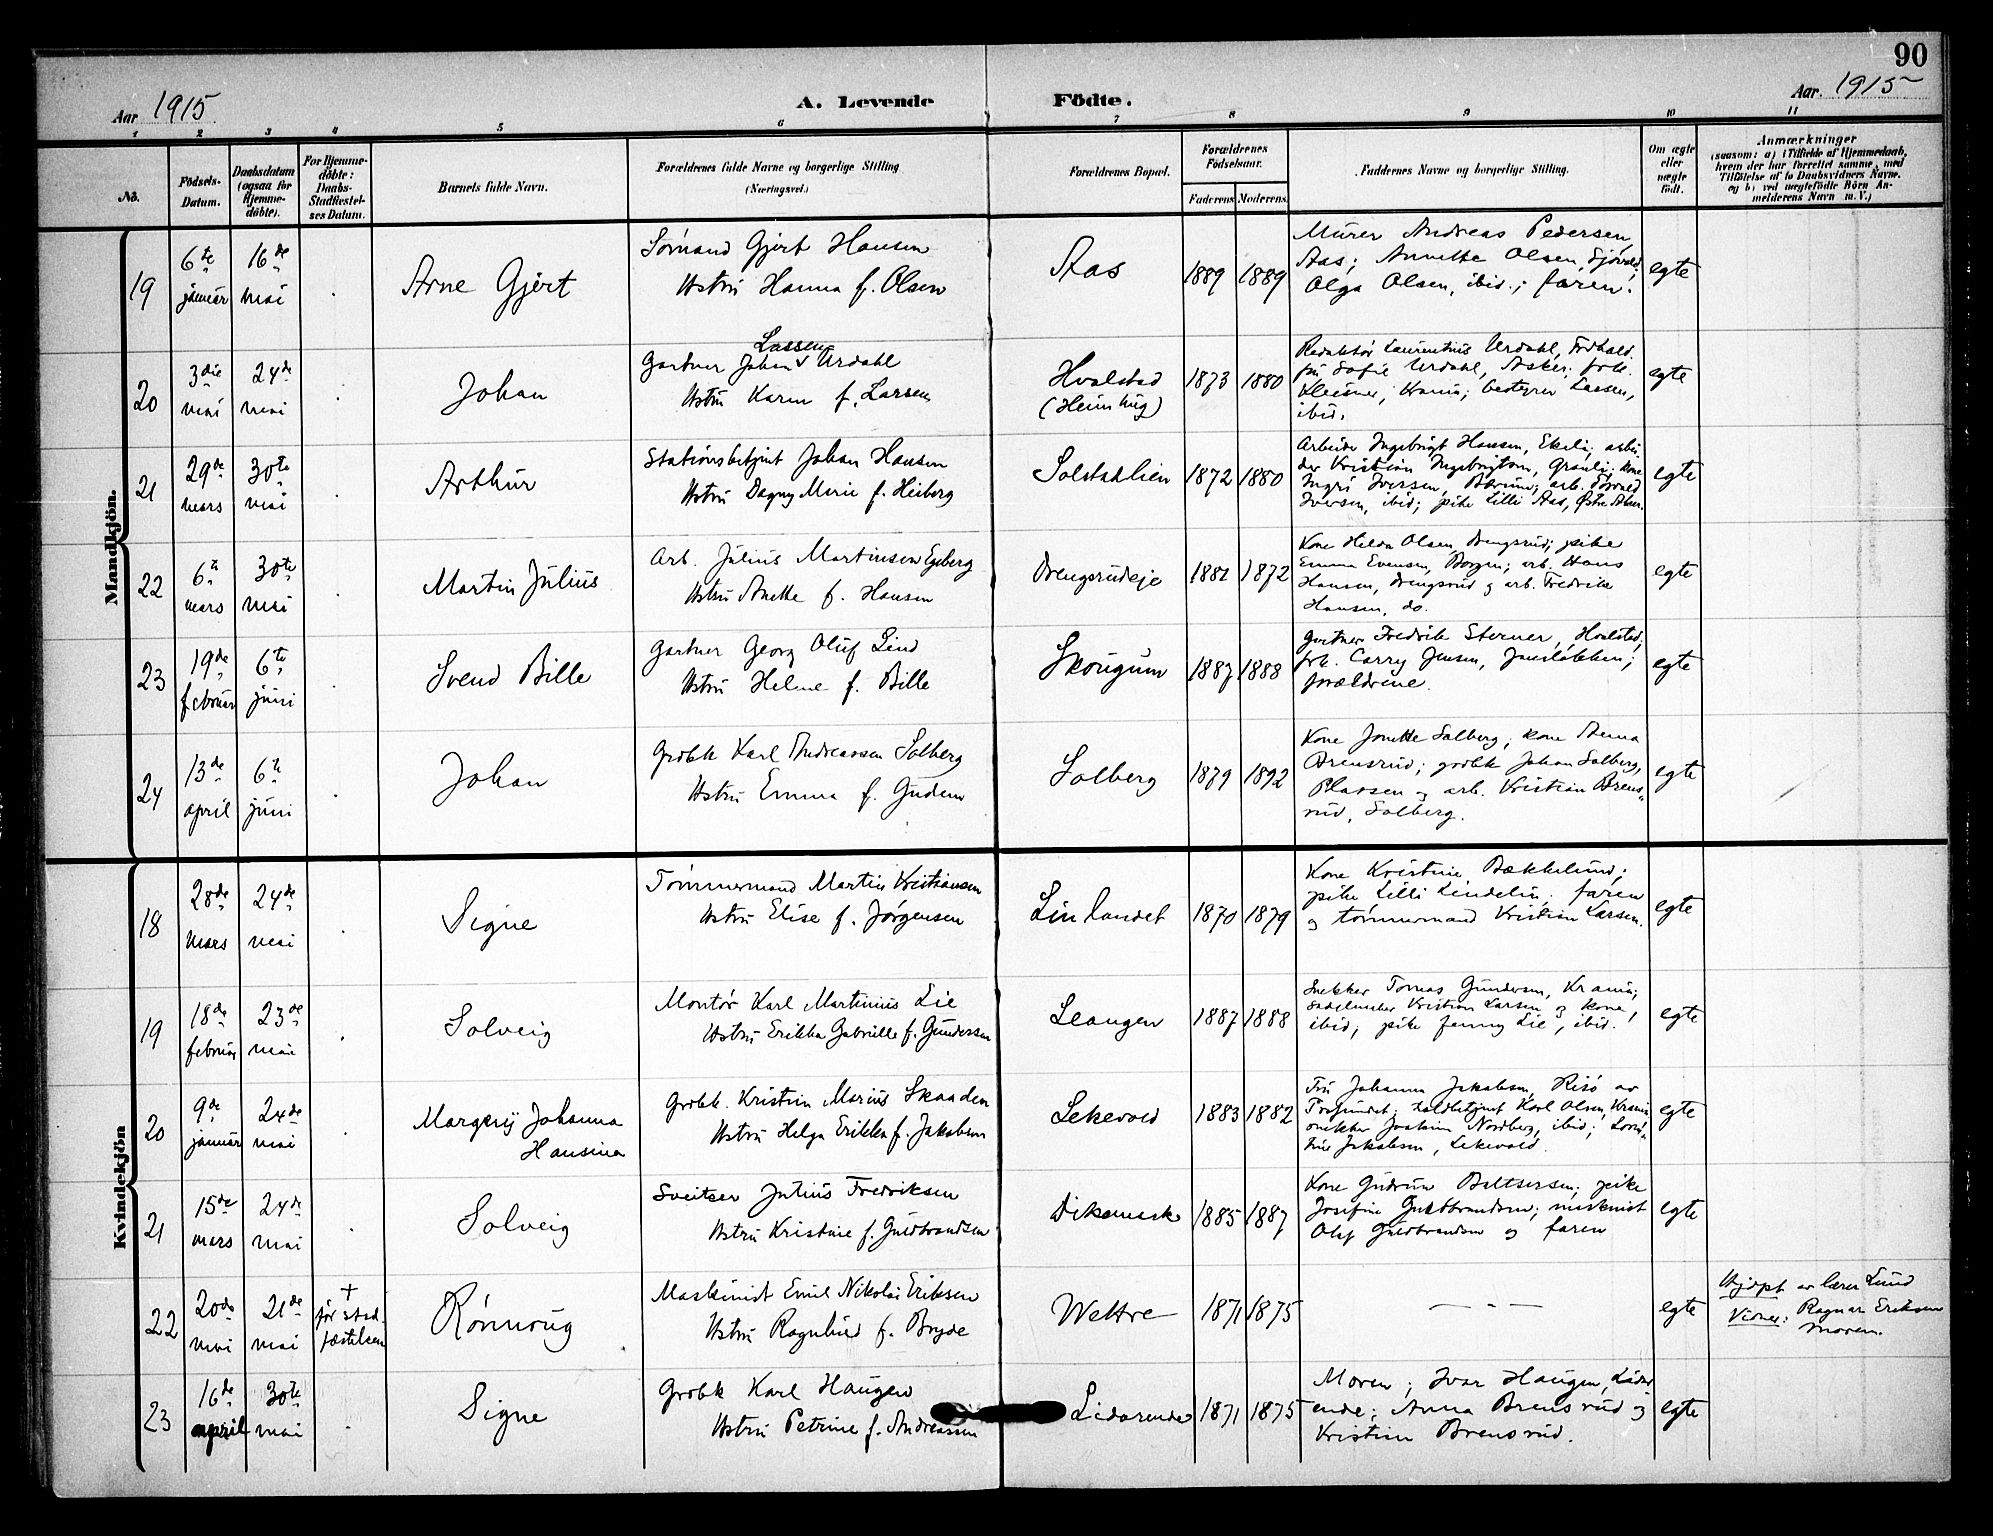 90
Aar 1915.
A. Levende
Födte.
Aar. 1915
1 2 3 4 5 6 7 8 9 10 11
No.
Födsels-
Datum.
Daabsdatum
(ogsaa for
Hjemme-
döbte).
For Hjemme-
döbte:
Daabs-
Stadfæstel-
ses Datum.
Barnets fulde Navn.
Forældrenes fulde Navne og borgerlige Stilling
(Næringsvei.)
Forældrenes Bopæl.
Forældrenes
Födselsaar.
Faderens Moderens
Faddernes Navne og borgerlige Stilling.
Om ægte
eller
uægte
födt.
Anmærkninger
(saasom: a) i Tilfælde af Hjemmedaab,
hvem der har forrettet samme, med
Tilföielse af to Daabsvidners Navne.
og b) ved uægtefödte Börn An-
melderens Navn m. V.)
Mandkjön.
19
6te
januar
16de
mai
Arne Gjert
Sømand Gjert Hansen
Hstru Hanna f. Olsen
Aas
1889 1889
Murer Andreas Pedersen,
Aas; Annette Olsen,
Olga Olsen, ibid.; faren.
egte
20
3die
mai
24de
mai
Johan
Lassen
Gartner Johan v Urdahl
Hstru Karen f. Larsen
Hvalstad
(Heim hug)
1873 1880
Redaktør Laurentius Urdahl,
fru Sofie Urdahl, Asker; frk.
Krania; bestyrer Lassen,
ibid.
egte
21
29de
mars
30te
mai
Arthur
Stationsbetjent Johan Hansen
Hstru Dagny Marie f. Heiberg
Solstadlien
1872 1880
Arbeider Ingebrigt Hansen, Ekeli; arbei-
der Kristian Ingebrigtsen, kone
Ingri Iversen, Bærum; arb.
Iversen, ibid; pike Lilli Aas, Østre
egte
22
6te
mars
30te
mai
Martin Julius
Arb. Julius Martinsen Egeberg
Hstru Anette f. Hansen
Drengsrudeje
1881 1872
Kone Helda Olsen, Drengsrud; pike
Emma Evensen, Borgen; arb. Hans
Hansen, Drengsrud og arb. Fredrik
Hansen, do.
egte
23
19de
februar
6te
juni
Svend Bille
Gartner Georg Oluf Lind
Hstru Helene f. Bille
Skougum
1887 1888
Gartner Fredrik Sterner, Hvalstad;
frk. Carry Jensen, Jansløkken;
forældrene.
egte
24
13de
april
6te
juni
Johan
Grdbk Karl Andreassen Solberg
Hstru Emma f. Gudem
Solberg
1879 1892
Kone Jonette Solberg; kone Anna
Brensrud; grdbk Johan Solberg,
Plassen og arb. Kristian Brens-
rud, Solberg.
egte
Kvindekjön
18
28de
mars
24de
mai
Signe
Tømmermand Martin Kristiansen
Hstru Elise f. Jørgensen
Linlandet
1870 1879
Kone Kristine Bækkelund;
pike Lilli Lindelin; faren
og tømmermand Kristian Larsen.
egte
19
18de
februar
23de
mai
Solveig
Montør Karl Martinius Lie
Hstru Erikka Gabrielle f. Gundersen
Leangen
1887 1888
Snekker Tomas Gundersen, Krania;
Kristian Larsen og kone,
ibid; pike Jenny Lie, ibid.
egte
20
9de
januar
24de
mai
Margerij Johanna
Hansine
Grdbk. Kristian Marius Skaaden
Hstru Helga Erikka f. Jakobsen
Lekevold
1883 1882
Fru Johanna Jakobsen, Risø av
toldbetjent Karl Olsen, Krania
snekker Joakim Nordberg, ibid;
Jakobsen, Lekevold.
egte
21
15de
mars
24de
mai
Solveig
Sveitser Julius Fredriksen
Hstru Kristine f. Guldbrandsen
Dikemark
1885 1887
Kone Gudrun Baltsersen; pike
Josefine Guldbrandsen; maskinist
Olaf Guldbrandsen og faren
egte
22
20de
mai
21de
mai
+
før stad-
fæstelsen
Rønnoug
Maskinist Emil Nikolai Eriksen
Hstru Ragnhild f. Bryde
Wettre
1871 1875
— - —
egte
Hjdøpt av lærer Lund
Vidner: Ragnar Eriksen
moren.
23
16de
april
30te
mai
Signe
Grdbk Karl Haugen
Hstru Petrine f. Andreassen
Lidarende
1871 1875
Moren; Ivar Haugen, Lidar-
ende; Anna Brensrud og
Kristian Brensrud.
egte